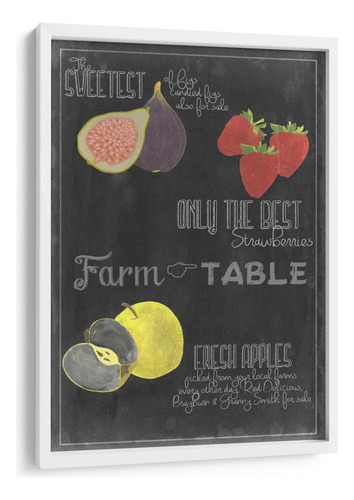 The
SWEETEST
of figs
candied figs
also for sale
ONLY THE BEST
Strawberries
Farm TABLE
FRESH APPLES
picked from your local farms
every other day. Red Delicious,
Brayburn & Granny Smith for sale